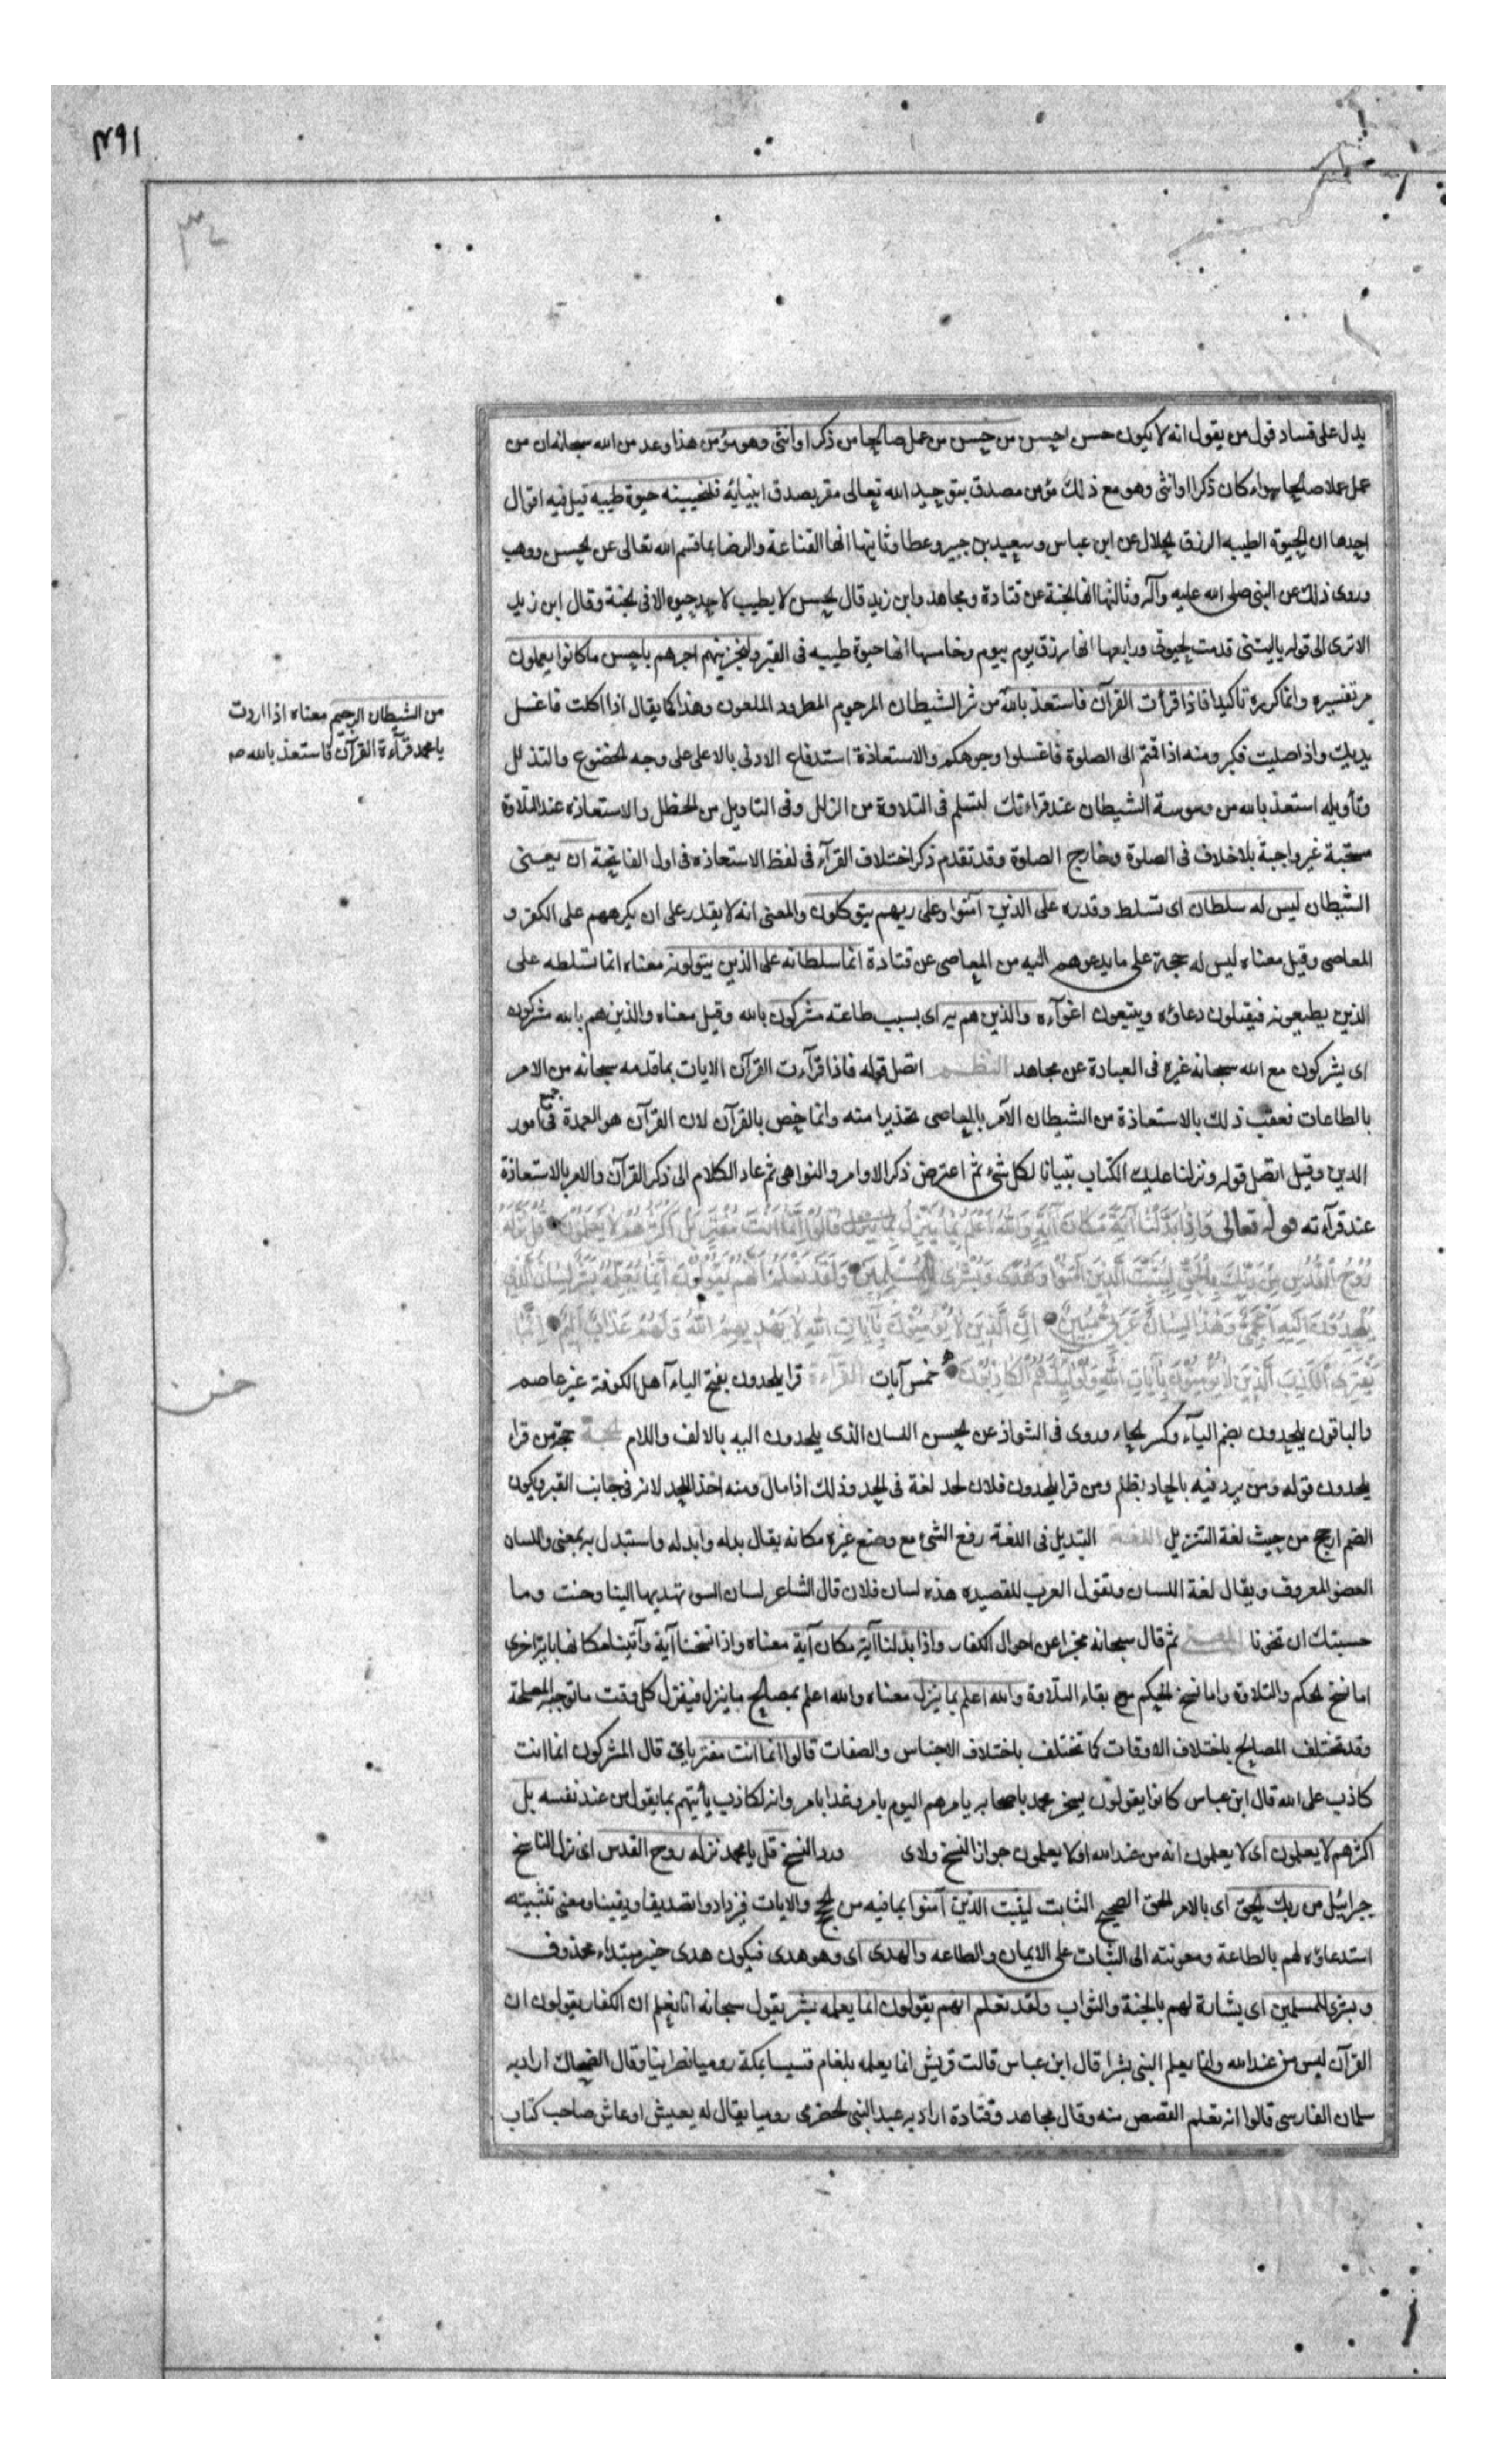 ١٩٣
يدل على فساد قول من يقول انه لا يكون حسن احسن من حسن من عمل صالحا من ذكر او انثى وهو مؤمن هذا وعد من الله سبحانه ان من
عمل عملا صالحا سواء كان ذكرا او انثى وهو مع ذلك مؤمن مصدق بتوحيد الله تعالى مقر بصدق انبيائه فلنحيينه حيوة طيبه قيل فيه اقوال
احدها ان الحيوة الطيبه الرزق الحلال عن ابن عباس وسعيد بن جبير وعطا وثانيها انها القناعة والرضا بما قسم الله تعالى عن الحسن ووهب
وروى ذلك عن النبى صلى الله عليه وآله وثالثها انها الجنة عن قتادة ومجاهد وابن زيد قال الحسن لا يطيب لاحد حيوه الا فى الجنة وقال ابن زيد
الا ترى الى قوله يا ليتنى قدمت لحيوتى ورابعها انها رزق يوم بيوم وخامسها انها حيوة طيبه فى القبر ولنجزينهم اجرهم باحسن ما كانوا يعملون
مر تفسيره وانما كرره تأكيدا فاذا قرأت القرآن فاستعذ بالله من شر الشيطان المرجوم المطرود الملعون وهذا كما يقال اذا اكلت فاغسل
من الشيطان الرجيم معناه اذا اردت
يا محمد قرآءة القرآن فاستعذ بالله صـ
يديك واذا صليت فكبر ومنه اذا قمتم الى الصلوة فاغسلوا وجوهكم والاستعاذة استدفاع الادنى بالاعلى على وجه الخضوع والتذلل
وتأويله استعذ بالله من وسوسة الشيطان عند قراءتك لتسلم فى التلاوة من الزلل وفى التاويل من الخطل والاستعاذه عند التلاوة
مستحبة غير واجبة بلا خلاف فى الصلوة وخارج الصلوة وقد تقدم ذكر اختلاف القرآء فى لفظ الاستعاذه فى اول الفاتحة انه يعنى
الشيطان ليس له سلطان اى تسلط وقدره على الذين آمنوا وعلى ربهم يتوكلون والمعنى انه لا يقدر على ان يكرههم على الكفر و
المعاصى وقيل معناه ليس له حجة على ما يدعوهم اليه من المعاصى عن قتادة انما سلطانه على الذين يتولونه معناه انما تسلطه على
الذين يطيعونه فيقبلون دعاؤه ويتبعون اغوآءه والذين هم به اى بسبب طاعته مشركون بالله وقيل معناه والذين هم بالله مشركون
اى يشركون مع الله سبحانه غيره فى العبادة عن مجاهد النظـــم اتصل قوله فاذا قرآءت القرآن الايات بما قدمه سبحانه من الامر
بالطاعات فعقب ذلك بالاستعاذة من الشيطان الآمر بالمعاصى تحذيرا منه وانما خص بالقرآن لان القرآن هو العمدة فى جميع امور
الدين وقيل اتصل قوله ونزلنا عليك الكتاب تبيانا لكل شىء ثم اعترض ذكر الاوامر والنواهى ثم عاد الكلام الى ذكر القرآن والامر بالاستعاذة
عند قرآءته قوله تعالى وَاِذا بَدَّلْنا آيَةً مَكانَ آيَةٍ وَاللهُ اَعْلَمُ بِما يُنَزِّلُ قالُوا اِنَّما اَنْتَ مُفْتَرٍ بَلْ اَكْثَرُهُمْ لا يَعْلَمُونَ قُلْ نَزَّلَهُ
رُوحُ القُدُسِ مِنْ رَبِّكَ بِالْحَقِّ لِيُثَبِّتَ الَّذِينَ آمَنُوا وَهُدًى وَبُشْرى لِلْمُسْلِمِينَ وَلَقَدْ نَعْلَمُ اَنَّهُمْ يَقُولُونَ اِنَّما يُعَلِّمُهُ بَشَرٌ لِسانُ الَّذِي
يُلْحِدُونَ اِلَيْهِ اَعْجَمِيٌّ وَهذا لِسانٌ عَرَبِيٌّ مُبِينٌ اِنَّ الَّذِينَ لا يُؤْمِنُونَ بِآياتِ اللهِ لا يَهْدِيهِمُ اللهُ وَلَهُمْ عَذابٌ اَلِيمٌ اِنَّما
يَفْتَرِى الْكَذِبَ الَّذِينَ لا يُؤْمِنُونَ بِآياتِ اللهِ وَاُولئِكَ هُمُ الْكاذِبُونَ خمس آيات القراءة قرا يلحدون بفتح الياء آهل الكوفة غير عاصم
والباقون يلحدون بضم اليآء وكسر الحاء وروى فى الشواذ عن الحسن اللسان الذى يلحدون اليه بالالف واللام الحجة حجة من قرا
يلحدون قوله ومن يرد فيه بالحاد بظلم ومن قرا يلحدون فلان لحد لغة فى الحد وذلك اذا مال ومنه اخذ اللحد لانه فى جانب القبر ويكون
الضم ارجح من حيث لغة التنزيل اللغة التبديل فى اللغة رفع الشىء مع وضع غيره مكانه يقال بدله وابدله واستبدل به بمعنى واللسان
العضو المعروف ويقال لغة اللسان وتقول العرب للقصيده هذه لسان فلان قال الشاعر لسان السوء تهديها الينا وحنت وما
حسبتك ان تخونا المعنى ثم قال سبحانه مخبرا عن احوال الكفار واذا بدلنا آية مكان آية معناه واذا نسخنا آية وآتينا مكانها باية اخرى
اما نسخ الحكم والتلاوة واما نسخ الحكم مع بقاء التلاوة والله اعلم بما ينزل معناه والله اعلم بمصالح ما ينزل فينزل كل وقت ما توجبه المصلحة
وقد تختلف المصالح باختلاف الاوقات كما تختلف باختلاف الاجناس والصفات قالوا انما انت مفتر اى قال المشركون انما انت
كاذب على الله قال ابن عباس كانوا يقولون يسخر محمد باصحابه يامرهم اليوم بامر وغدا بامر وانه لكاذب يأتيهم بما يقول من عند نفسه بل
اكثرهم لا يعلمون اى لا يعلمون انه من عند الله او لا يعلمون جواز النسخ ولاى ورد النسخ قل يا محمد نزله روح القدس اى نزل الناسخ
جبرائيل من ربك بالحق اى بالامر الحق الصحيح الثابت ليثبت الذين آمنوا بما فيه من الحجج والايات فيزدادوا تصديقا ويقينا ومعنى تثبيته
استدعاؤه لهم بالطاعة ومعونته الى الثبات على الايمان والطاعه والهدى اى وهو هدى فيكون هدى خبر مبتداء محذوف
وبشرى للمسلمين اى بشارة لهم بالجنة والثواب ولقد نعلم انهم يقولون انما يعلمه بشر يقول سبحانه انا نعلم ان الكفار يقولون ان
القرآن ليس من عند الله وانما يعلم النبى بشر قال ابن عباس قالت قريش انما يعلمه بلعام قسيسا بمكة روميا نصرانيا وقال الضحاك اراد به
سلمان الفارسى قالوا انه تعلم القصص منه وقال مجاهد وقتادة اراد به عبد النبى الحضرمى روميا يقال له يعيش او عائش صاحب كتاب